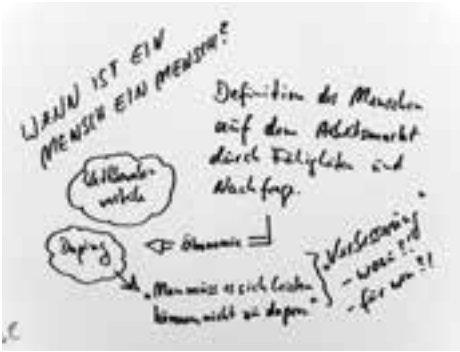 WANN IST EIN
MENSCH EIN MENSCH?
Definition des Menschen
auf dem Arbeitsmarkt
durch Fähigkeiten und
Nachfrage.
Doping
Ökonomie
„Man muss es sich leisten
können, nicht zu dopen“
„Verbesserung“
- wozu?!?
- für wen?!